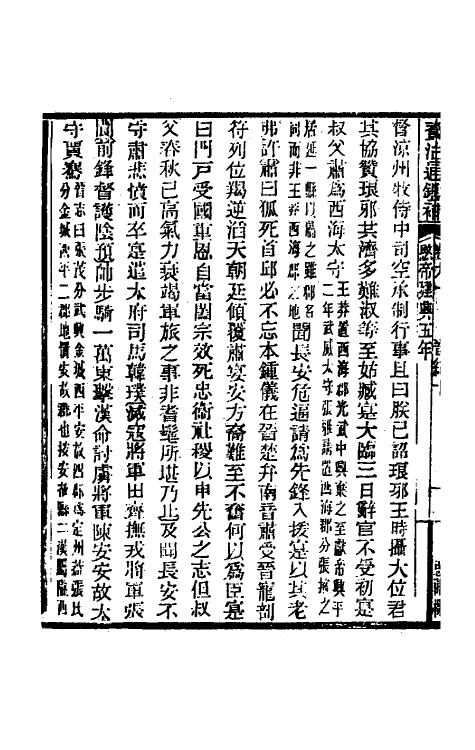 資治通鑑補
愍帝建興五年
督涼州牧侍中司空承制行事且曰朕已詔琅邪王時攝大位君
其協贊琅邪共濟多難淑等至姑臧寔大臨三日辭官不受初寔
叔父肅為西海太守
王莽置西海郡光武中興棄之至獻帝興平
二年武威太守張雅請置西海郡分張掖之
居延一縣以屬之雖郡名
同而非王莽西海郡之地
聞長安危逼請為先鋒入援寔以其老
弗許肅曰狐死首邱必不忘本鍾儀在晉楚弁南音肅受晉寵剖
符列位羯逆滔天朝廷傾覆肅宴安方裔難至不奮何以為臣寔
曰門戶受國重恩自當闔宗效死忠衛社稷以申先公之志但叔
父春秋已高氣力衰竭軍旅之事非耆耄所堪乃止及聞長安不
守肅悲憤而卒寔遣太府司馬韓璞滅寇將軍田齊撫戎將軍張
閬前鋒督護陰預帥步騎一萬東擊漢命討虜將軍陳安安故太
守賈騫
晉志曰張茂分武興金城西平安故四郡為定州蓋張氏
分金城西平二郡地置安故郡也按安故縣二漢屬隴西